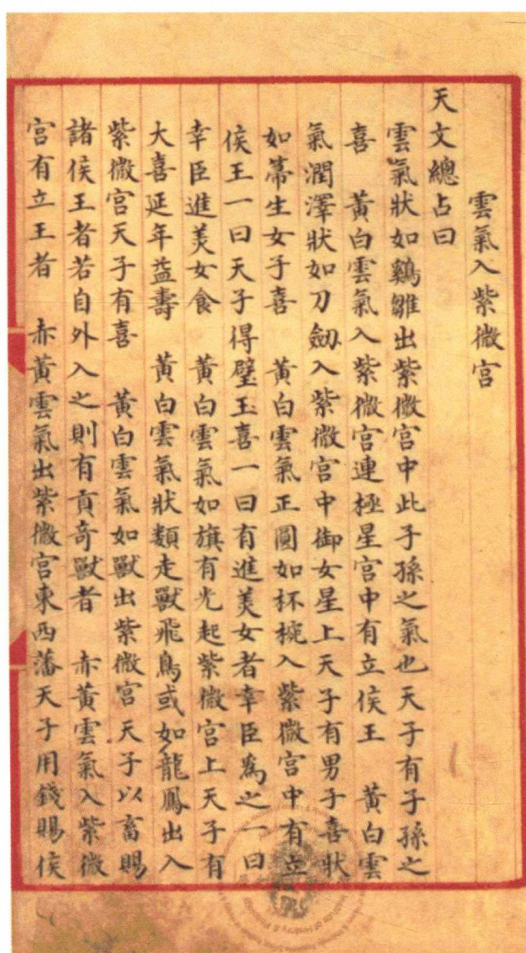 雲氣入紫微宮
天文總占曰
雲氣狀如鷄雛出紫微宮中此子孫之氣也天子有子孫之
喜　黃白雲氣入紫微宮連極星宮中有立侯王　黃白雲
氣潤澤狀如刀劒入紫微宮中御女星上天子有男子喜狀
如帚生女子喜　黃白雲氣正圓如杯椀入紫微宮中有立
侯王一曰天子得璧玉喜一曰有進美女者幸臣爲之一曰
幸臣進美女食　黃白雲氣如旗有光起紫微宮上天子有
大喜延年益壽　黃白雲氣狀類走獸飛鳥或如龍鳳出入
紫微宮天子有喜　黃白雲氣如獸出紫微宮天子以畜賜
諸侯王者若自外入之則有貢奇獸者　赤黃雲氣入紫微
宮有立王者　赤黃雲氣出紫微宮東西藩天子用錢賜侯